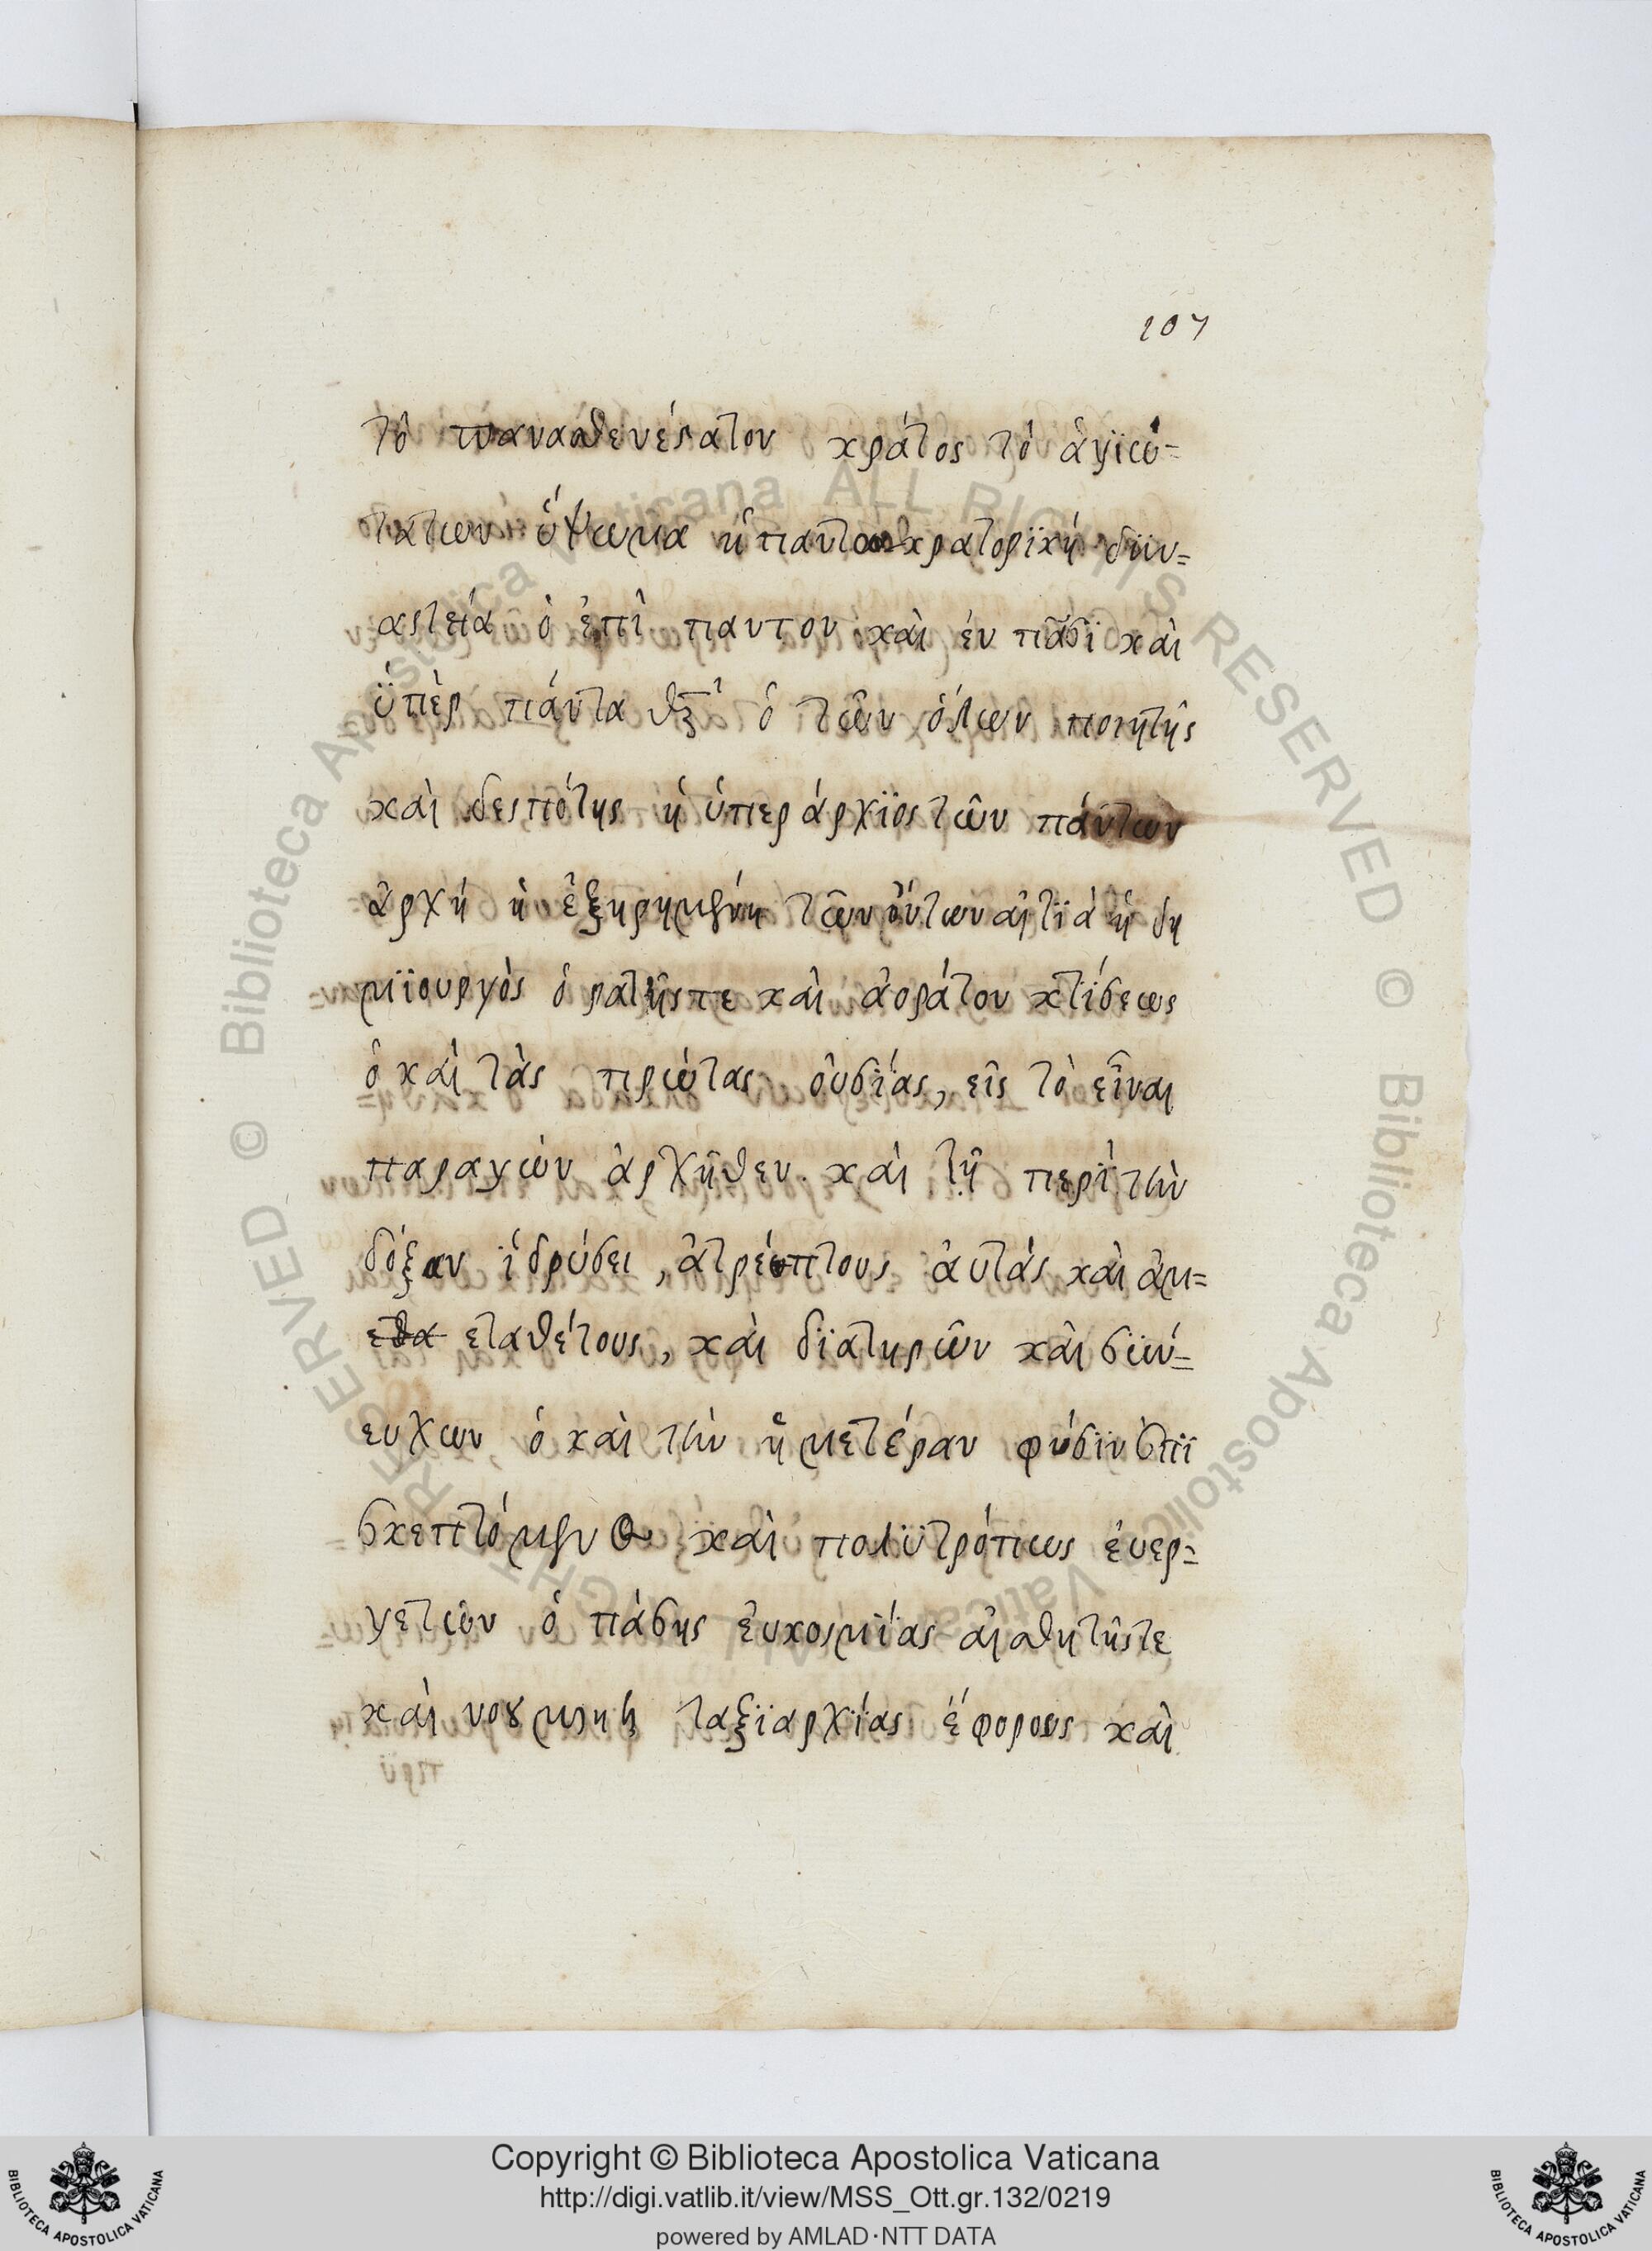 107
τὸ πανασθενέστατον κράτος τὸ ἁγϊώ=
τατων ὕψωμα ἡ παντοκρατορϊκὴ δϋν=
αστεία ὁ ἐπὶ παντον καὶ ἐν πᾶσϊ καὶ
ὑπὲρ πάντα θ̅ς̅ ὁ τῶν ὅλων ποιητὴς
καὶ δεσπότης ἡ ὑπερ άρχϊος τῶν πάντων
ἀρχή ἡ ἐξηρημένη τῶν ὄντων αἰτϊὰ ἡ δη
μϊουργὸς ὁρατῆς τε καὶ ἀοράτου κτίσεως
ὁ καὶ τὰς πρώτας οὐσΐας, εἰς τὸ εἶναι
παραγών ἀρχῆθεν καὶ τῇ περὶ τὴν
δόξαν ἱδρύσει, ἀτρέπτους ἀυτάς καὶ ἀμ=
εταθέτους, καὶ δϊατηρῶν καὶ σϋν=
ευχων ὁ καὶ τὴν ἡμετέραν φύσϊν ἐπϊ
σκεπτόμεν καὶ πολϋτρόπως ἐυερ=
γετῶν ὁ πάσης ἐυκοσμΐας αἰσθητῆς τε
καὶ νουμένης ταξϊαρχΐας ἔφορους καὶ
Copyright © Biblioteca Apostolica Vaticana
http://digi.vatlib.it/view/MSS_Ott.gr.132/0219
powered by AMLAD·NTT DATA
BIBLIOTECA APOSTOLICA VATICANA
BIBLIOTECA APOSTOLICA VATICANA
© Biblioteca Apostolica Vaticana ALL RIGHTS RESERVED
© Biblioteca Apostolica Vaticana ALL RIGHTS RESERVED